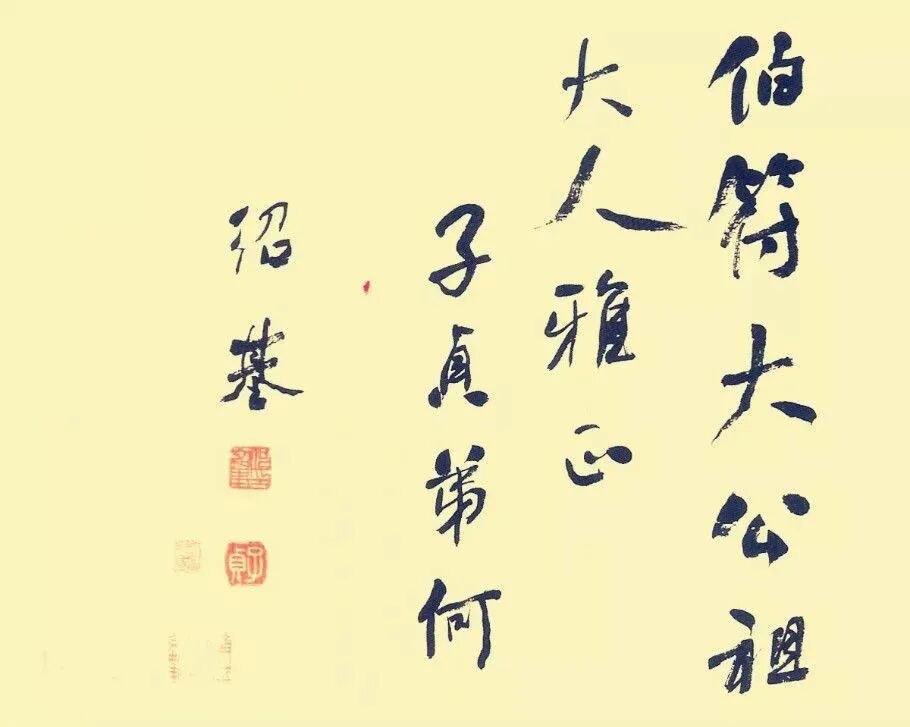 伯符大公祖
大人雅正
子貞弟何
紹基
子貞